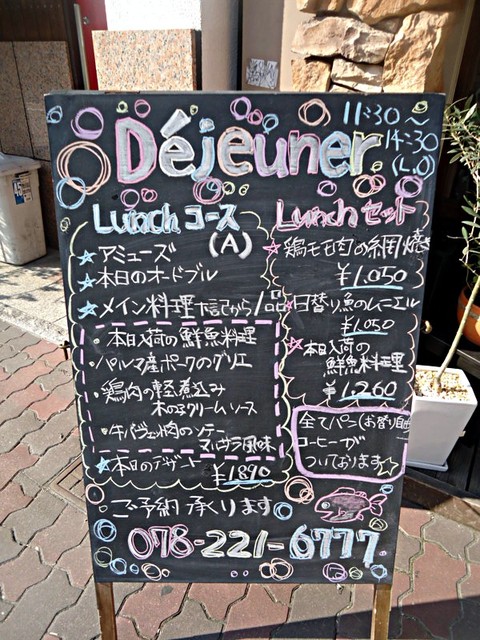 Déjeuner
11:30～
14:30
(L.O)
Lunch コース
(A)
★アミューズ
★本日のオードブル
★メイン料理 下記から1品
・本日入荷の鮮魚料理
・パルマ産ポークのグリエ
・鶏肉の軽煮込み
木の子クリームソース
・牛バヴェット肉のソテー
マルサラ風味
★本日のデザート ¥1890
Lunch セット
★鶏モモ肉の網焼き
¥1,050
★日替り魚のムニエル
¥1,050
★本日入荷の
鮮魚料理
¥1,260
全てパン(お替り自由)
コーヒーが
ついております☆
ご予約 承ります
078-221-6777